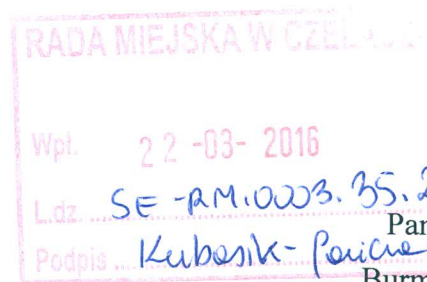 RADA MIEJSKA W
Wpł. 22 -03- 2016
L.dz. SE-RM.0003.35.2
Pan
Podpis Kubasik-
Burm